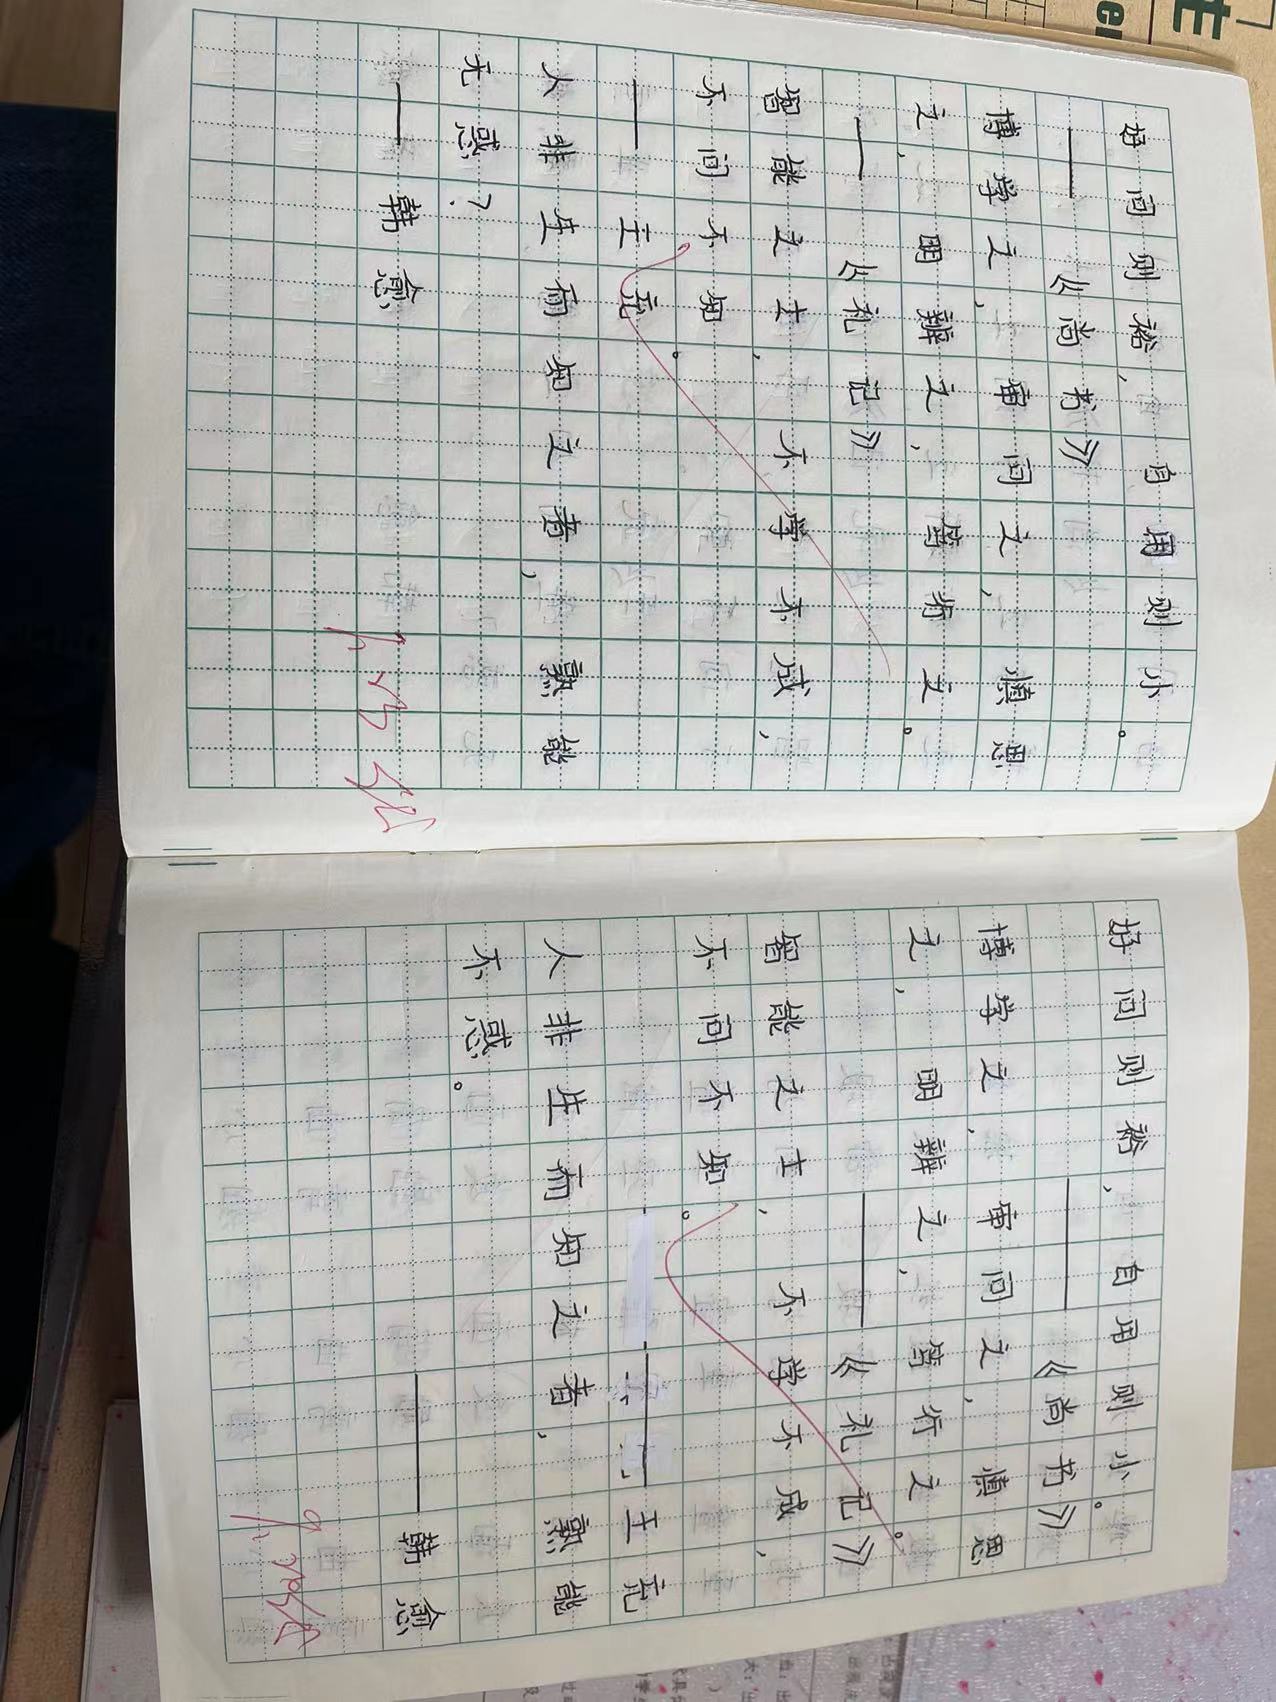 好问则裕，自用则小。
——《尚书》
博学之，审问之，慎思
之，明辨之，笃行之。
——《礼记》
智能之士，不学不成，
不问不知。
——王充
人非生而知之者，熟能
无惑？
——韩愈
好问则裕，自用则小。
——《尚书》
博学之，审问之，慎思
之，明辨之，笃行之。
——《礼记》
智能之士，不学不成，
不问不知。
——王充
人非生而知之者，熟能
不惑。
——韩愈